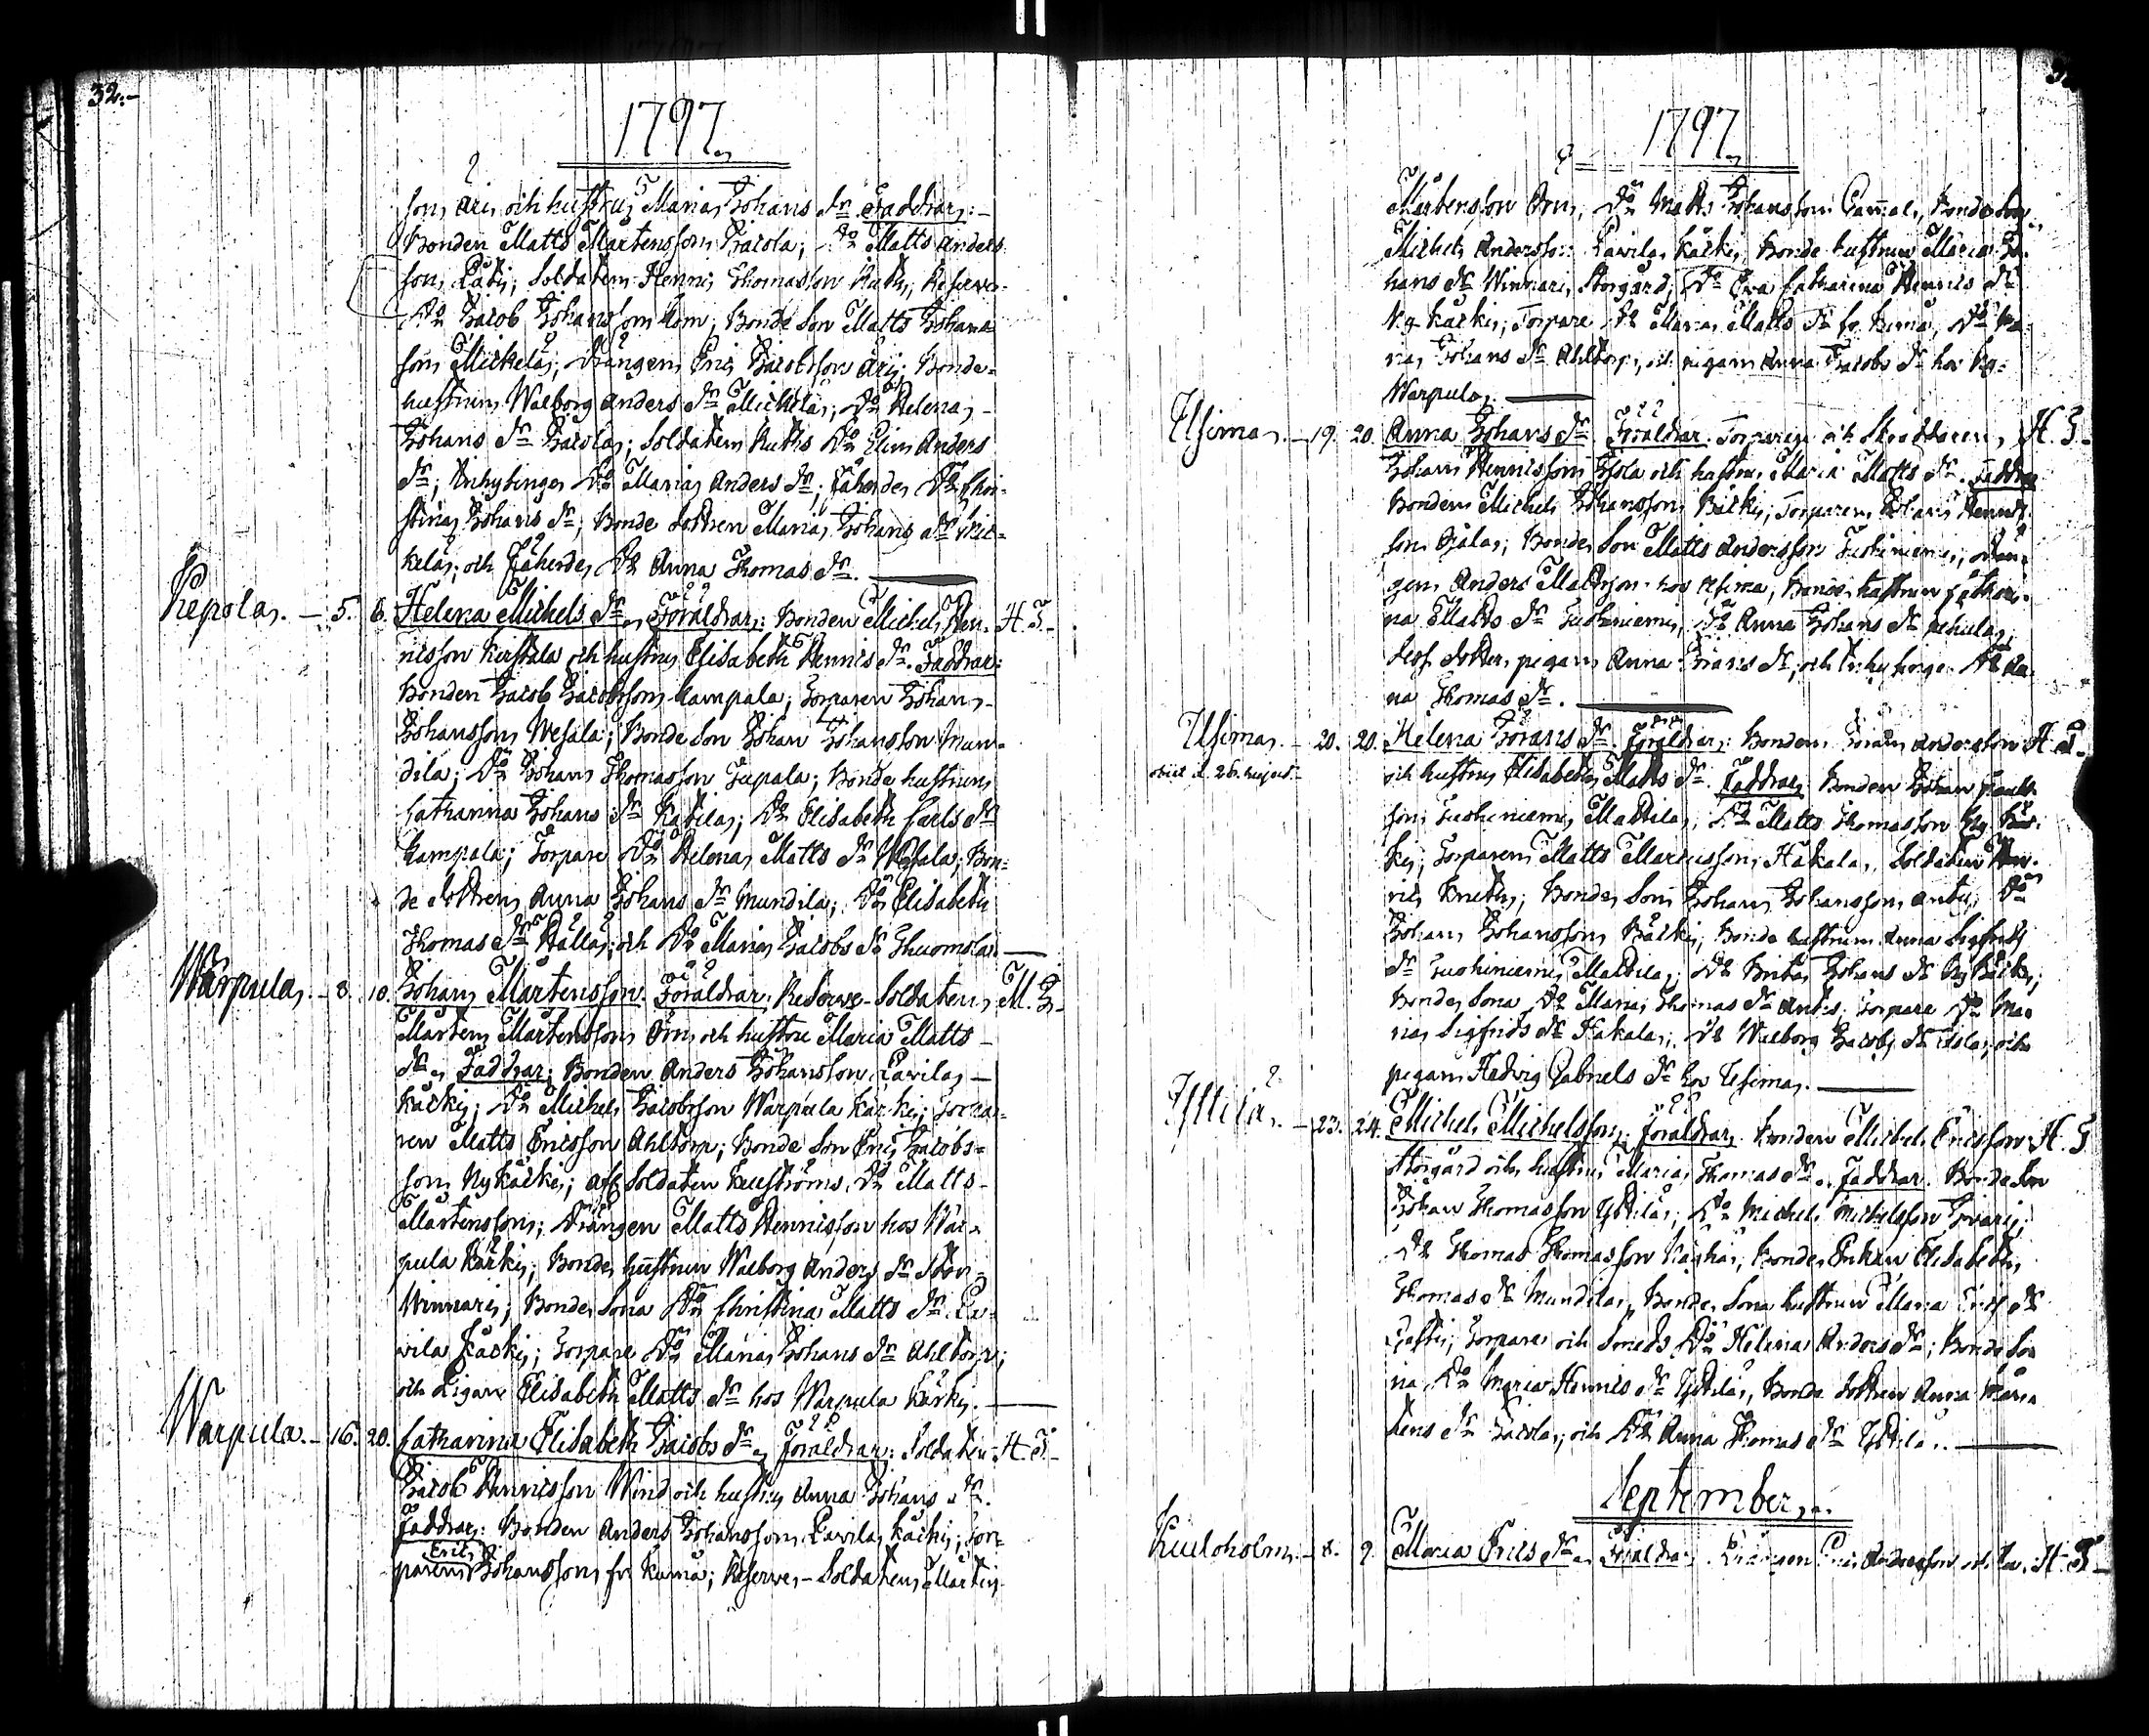 32.-
1797.
son Äri, och hustru Maria Johans dr. Faddrar:-
Bonden Matts Mårtensson Jacola; do Matts Anders-
son Lati; Soldaten Henric Thomasson Ruth; Reserve-
do Jacob Johansson Kom; Bonde Son Matts Johans-
son Mickelä; Drängen Eric Jacobsson Äri; Bonde-
hustrun Walborg Anders dr Mickelä; do Helena
Johans dr Jacola; Soldaten Ruths do Elin Anders
dr; Inhysinge do Maria Anders dr; Fäherde do Chri-
stina Johans dr; Bonde dottren Maria Johans dr Mic-
kelä; och Fäherde do Anna Thomas dr.
Kepola. - 5. 6. Helena Michels dr. Föräldrar: Bonden Michel Hen- H. T.-
ricsson Kirstala och hustru Elisabeth Henrics dr. Faddrar:
Bonden Jacob Jacobsson Kampala; Torparen Johan
Johansson Wesala; Bonde Son Johan Johansson Mun-
dila; do Johan Thomasson Jupala; Bonde hustrun
Catharina Johans dr Katila; do Elisabeth Carls dr
Kampala; Torpare do Helena Matts dr Wesala; Bon-
de dottren Anna Johans dr Mundila; do Elisabeth
Thomas dr Hälla; och do Maria Jacobs dr Thuomola.
Warpula. - 8. 10. Johan Mårtensson. Föräldrar: Reserve-Soldaten M. J.-
Mårten Mårtensson Örn och hustru Maria Matts
dr. Faddrar: Bonden Anders Johansson Lavila
Kärki; do Michel Jacobsson Warpula Kärki; Torpa-
ren Matts Ericsson Ahltorp; Bonde Son Eric Jacobs-
son Nykärki; afsk. Soldaten do Matts
Mårtensson; Drängen Matts Henricsson hos War-
pula Kärki; Bonde hustrun Walborg Anders dr Stor-
Winnari; Bonde Sona do Christina Matts dr La-
vila Kärki; Torpare do Maria Johans dr Ahltorp;
och Pigan Elisabeth Matts dr hos Warpula Kärki.
Warpula. - 16. 20. Catharina Elisabeth Jacobs dr. Föräldrar: Soldaten H. T.-
Jacob Henricsson Wind och hustru Anna Johans dr.
Faddrar: Bonden Anders Johansson Lavila Kärki; Tor-
paren Eric Johansson fr. Kuma; Reserve-Soldaten Mårten
1797.
Mårtensson Örn; do Matts Johansson Gamal; Bonde Son
Michel Andersson Lavila Kärki; Bonde hustrun Maria Jo-
hans dr Winnari Storgård; do Eva Catharina Henrics dr
Ny Kärki; Torpare do Maria Matts dr fr. Kuma; do Ma-
ria Johans dr Ahltorp; och pigan Anna Jacobs dr hos Ny-
Warpula.
Ilsima. - 19. 20. Anna Johans dr. Föräldrar: Torparen och Skräddaren H. T.-
Johan Henricsson och hustru Maria Matts dr. Faddrar
Bonden Michel Johansson Bäcki; Torparen Johan Henrics-
son Ojala; Bonde Son Matts Andersson Tuohiniemi; Drän-
gen Anders Mattsson hos Ilsima; Bonde hustrun Cathari-
na Matts dr Tuohiniemi; do Anna Johans dr
dotter pigan Anna Johans dr; och Inhysinge do An-
na Thomas dr.
Ilsima. - 20. 20. Helena Görans dr. Föräldrar: Bonden Göran Andersson H. T.-
obiit d. 26. hujus. och hustru Elisabeth Matts dr. Faddrar Bonden Johan
son Tuohiniemi Mattila; do Matts Thomasson Ny Kär-
ki; Torparen Matts Marcusson Hakala; Soldaten Hen-
ric; Bonde Son Johan Johansson Antti; do
Johan Johansson Bäcki; Bonde hustrun Anna Sigfrids
dr Tuohiniemi Mattila; do Brita Johans dr Ny Kärki;
Bonde Sona do Maria Thomas dr Antti; Torpare do Ma-
ria Sigfrids dr Hakala; do Walborg Jacobs dr; och
pigan Hedvig Gabriels dr hos Ilsima.
Yttilä. - 23. 24. Michel Michelsson. Föräldrar Bonden Michel Ericsson H. T.
Storgård och hustru Maria Thomas dr. Faddrar. Bonde Son
Johan Thomasson Yttilä; do Michel Michelsson
do Thomas Thomasson Bonde Enkan Elisabeth
Thomas dr Mundila; Bonde Sona hustrun Maria Erics dr
Torpare och Smeds do Helena Anders dr; Bonde So-
na do Maria Henrics dr Yttilä; Bonde dottren Anna Mår-
tens dr Jacola; och do Anna Thomas dr Yttilä.
September.
Kuuloholm. - 8. 9. Maria Erics dr. Föräldrar. Drängen Eric Andersson och H. T.-